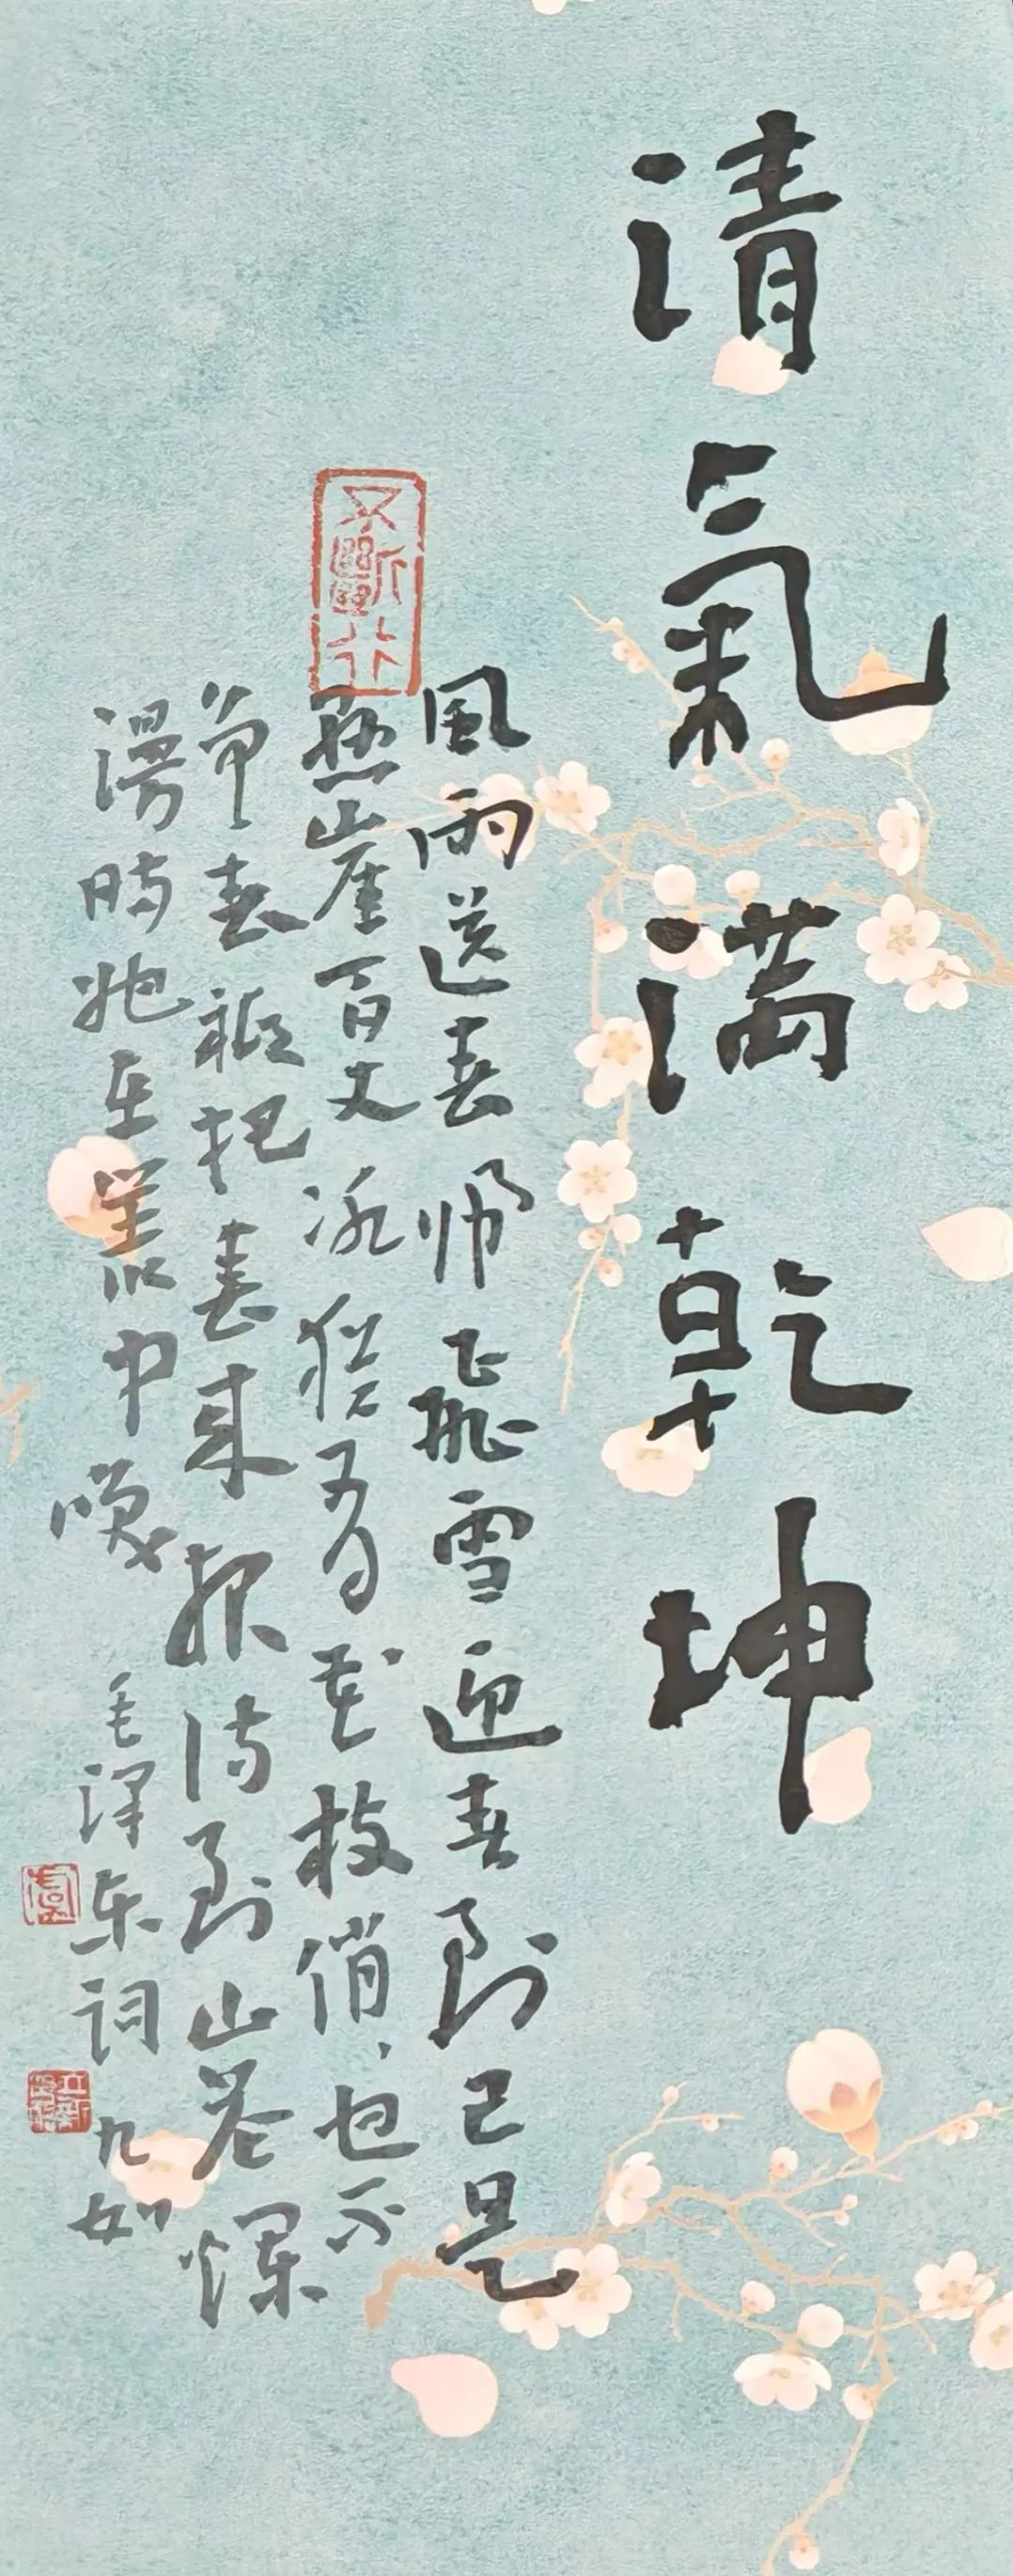 清氣满乾坤
風雨送春歸飛雪迎春到已是
懸崖百丈冰猶有花枝俏也不
争春祇把春来报待到山花爛
漫時她在叢中咲 毛泽东词 九如